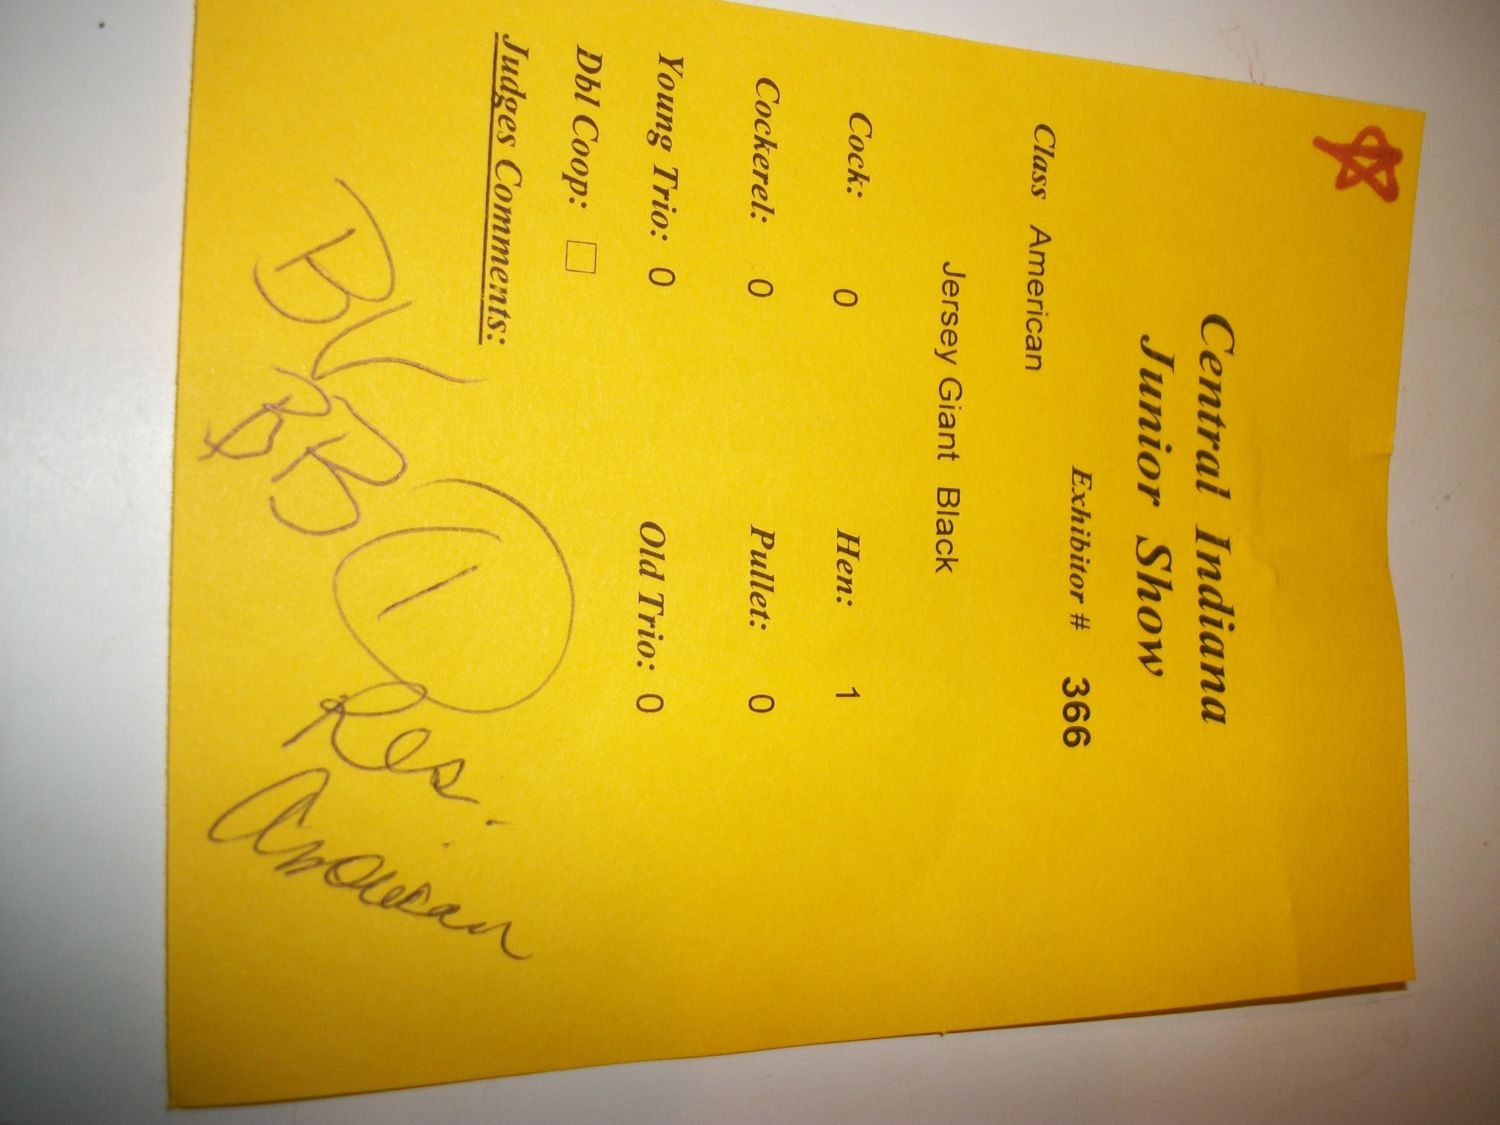 Central Indiana
Junior Show
Exhibitor # 366
Class American
Jersey Giant Black
Cock: 0 Hen: 1
Cockerel: 0 Pullet: 0
Young Trio: 0 Old Trio: 0
Dbl Coop:
Judges Comments:
BV
BB 1
Res.
American